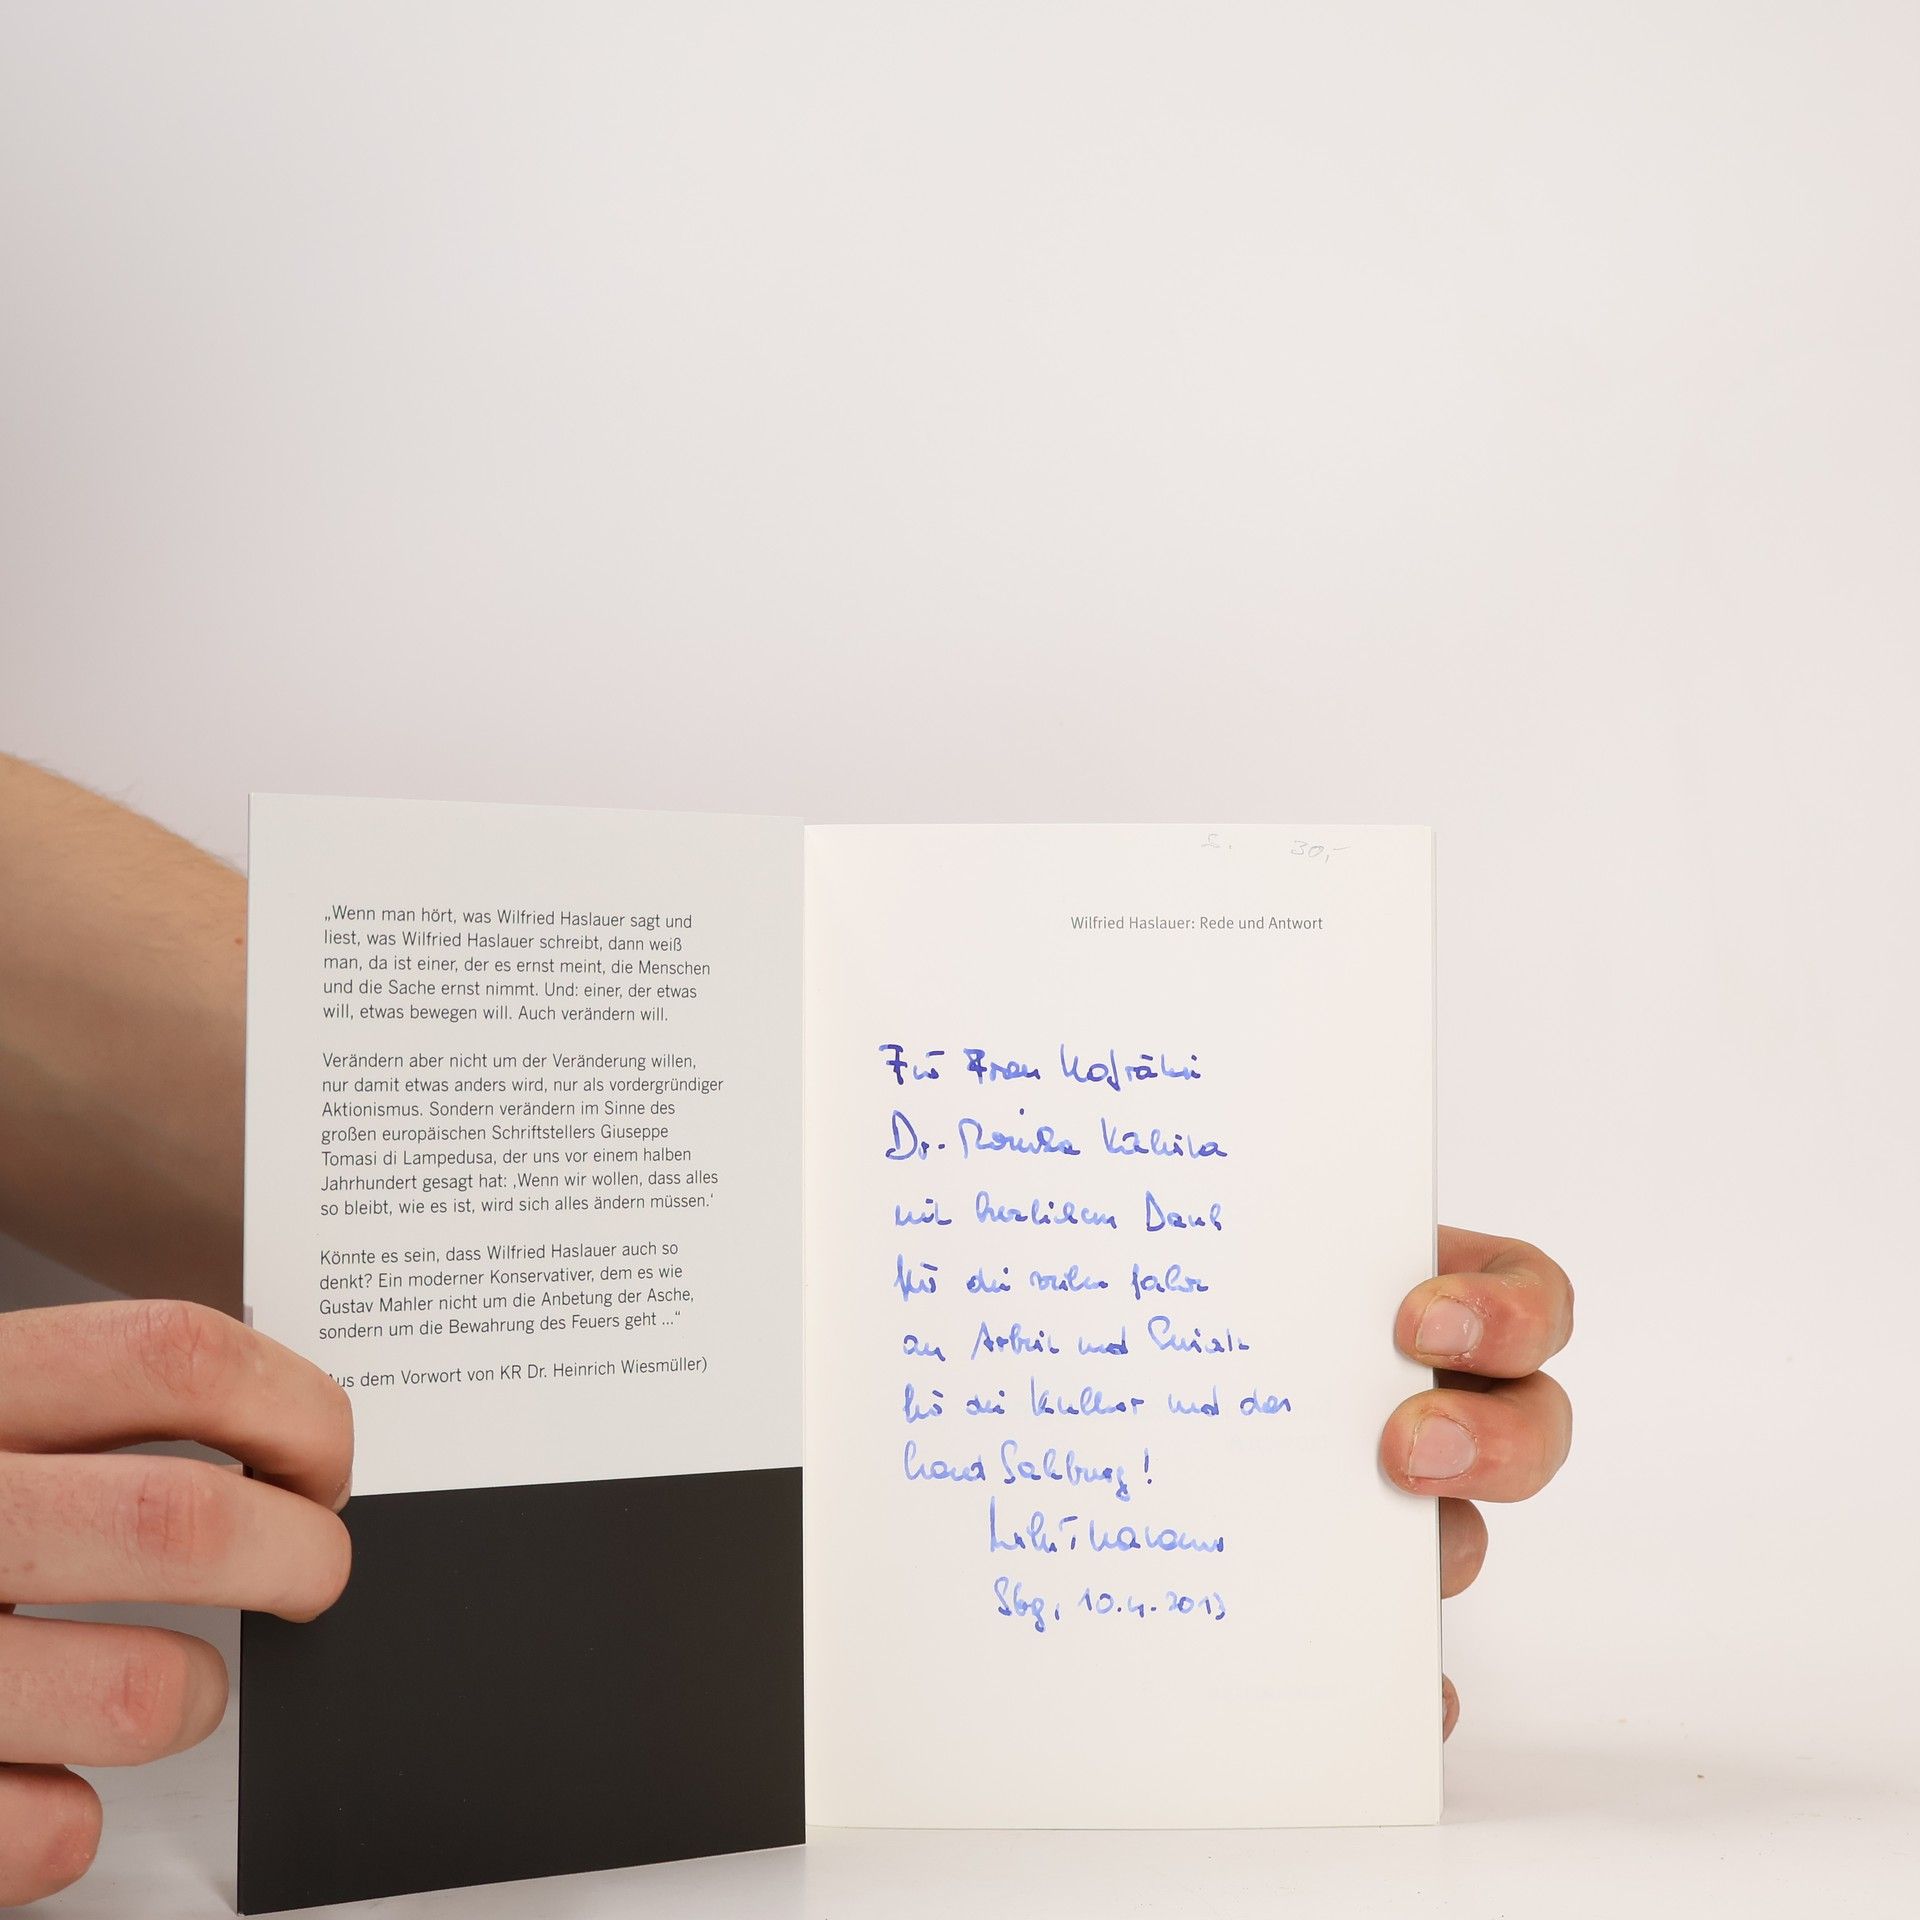 „Wenn man hört, was Wilfried Haslauer sagt und
liest, was Wilfried Haslauer schreibt, dann weiß
man, da ist einer, der es ernst meint, die Menschen
und die Sache ernst nimmt. Und: einer, der etwas
will, etwas bewegen will. Auch verändern will.
Verändern aber nicht um der Veränderung willen,
nur damit etwas anders wird, nur als vordergründiger
Aktionismus. Sondern verändern im Sinne des
großen europäischen Schriftstellers Giuseppe
Tomasi di Lampedusa, der uns vor einem halben
Jahrhundert gesagt hat: ‚Wenn wir wollen, dass alles
so bleibt, wie es ist, wird sich alles ändern müssen.‘
Könnte es sein, dass Wilfried Haslauer auch so
denkt? Ein moderner Konservativer, dem es wie
Gustav Mahler nicht um die Anbetung der Asche,
sondern um die Bewahrung des Feuers geht ...“
Aus dem Vorwort von KR Dr. Heinrich Wiesmüller)
30,-
Wilfried Haslauer: Rede und Antwort
Für Frau Hofrätin
Dr. Monika
mit herzlichem Dank
für die vielen Jahre
an Arbeit und Einsatz
für die Kultur und das
Land Salzburg!
Sbg, 10.4.2013